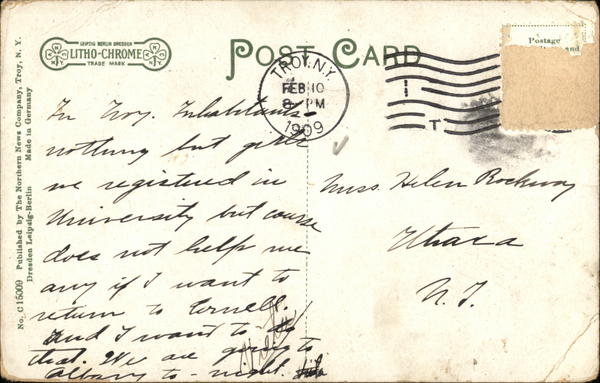 LEIPZIG BERLIN DRESDEN
LITHO-CHROME
TRADE MARK
POST CARD
Postage
TROY, N.Y.
FEB 10
8 PM
1909
No. C 15009 Published by The Northern News Company, Troy, N. Y.
Dresden Leipzig-Berlin Made in Germany
In Troy. Inhabitants -
nothing but girls
we registered in
University but course
does not help me
any if I want to
return to Cornell.
And I want to do
that. We are going to
Albany to-night
Miss. Helen Rockway
Ithaca
N. Y.